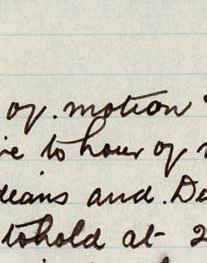 of. motion
to hour of
deans and. Da
tohold at 2